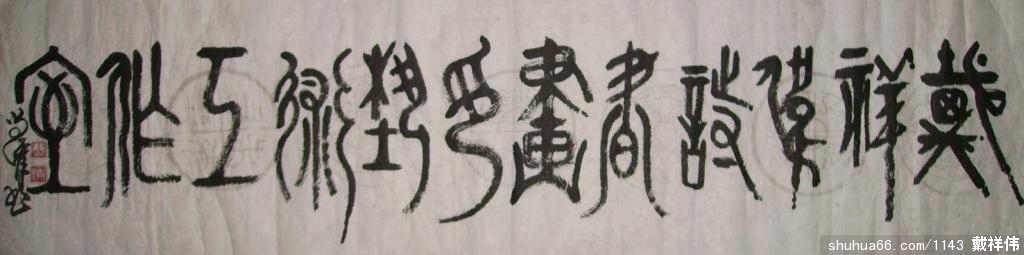 戴祥偉詩書畫印藝術工作室
shuhua66.com/1143 戴祥伟